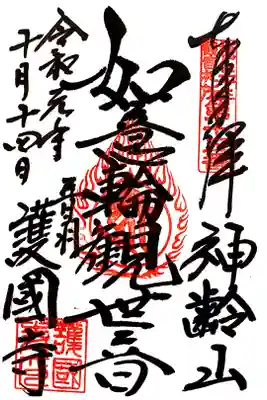 奉拝 神齢山
如意輪観世音
護國寺
令和元年
十月十四日